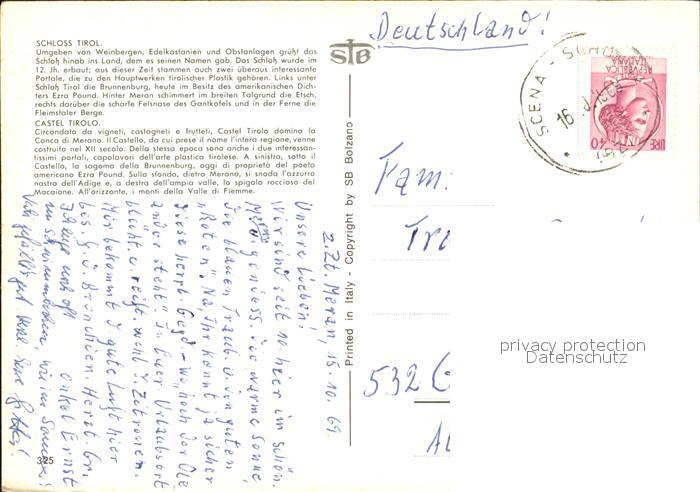 SCHLOSS TIROL.
Umgeben von Weinbergen, Edelkastanien und Obstanlagen grüßt das
Schloß hinab ins Land, dem es seinen Namen gab. Das Schloß wurde im
12. Jh. erbaut; aus dieser Zeit stammen auch zwei überaus interessante
Portale, die zu den Hauptwerken tirolischer Plastik gehören. Links unter
Schloß Tirol die Brunnenburg, heute im Besitz des amerikanischen Dich-
ters Ezra Pound. Hinter Meran schimmert im breiten Talgrund die Etsch,
rechts darüber die scharfe Felsnase des Gantkofels und in der Ferne die
Fleimstaler Berge.
CASTEL TIROLO.
Circondato da vigneti, castagneti e frutteti, Castel Tirolo domina la
Conca di Merano. Il Castello, da cui prese il nome l'intera regione, venne
costruito nel XII secolo. Della stessa epoca sono anche i due interessan-
tissimi portali, capolavori dell'arte plastica tirolese. A sinistra, sotto il
Castello, la sagoma della Brunnenburg, oggi di proprietà del poeta
americano Ezra Pound. Sullo sfondo, dietro Merano, si snoda l'azzurro
nastro dell'Adige e, a destra dell'ampia valle, lo spigolo roccioso del
Macaione. All'orizzonte, i monti della Valle di Fiemme.
z. Zt. Meran, 15.10.69
Unsere Lieben!
Wir sind seit 10 hier im schön.
Meran u. geniess. die warme Sonne,
die blauen Traub. u. den guten
"Roten". Na, Ihr kennt ja sicher
diese herrl. Gegd – wo noch der Ole
ander steht" In Euer Urlaubsort
blüht u. reift wohl d. Zitronen.
Mir bekommt d. gute Luft hier
bes. g. ü. Bronchien. Herzl. Gr.
Onkel Ernst
im schwimmbecken, wie im Sommer!
325
STB
Printed in Italy - Copyright by SB Bolzano
Deutschland!
Fam:
532
SCENA - SCH
16
REPVBBLICA
ITALIANA
LIRE 40
privacy protection
Datenschutz